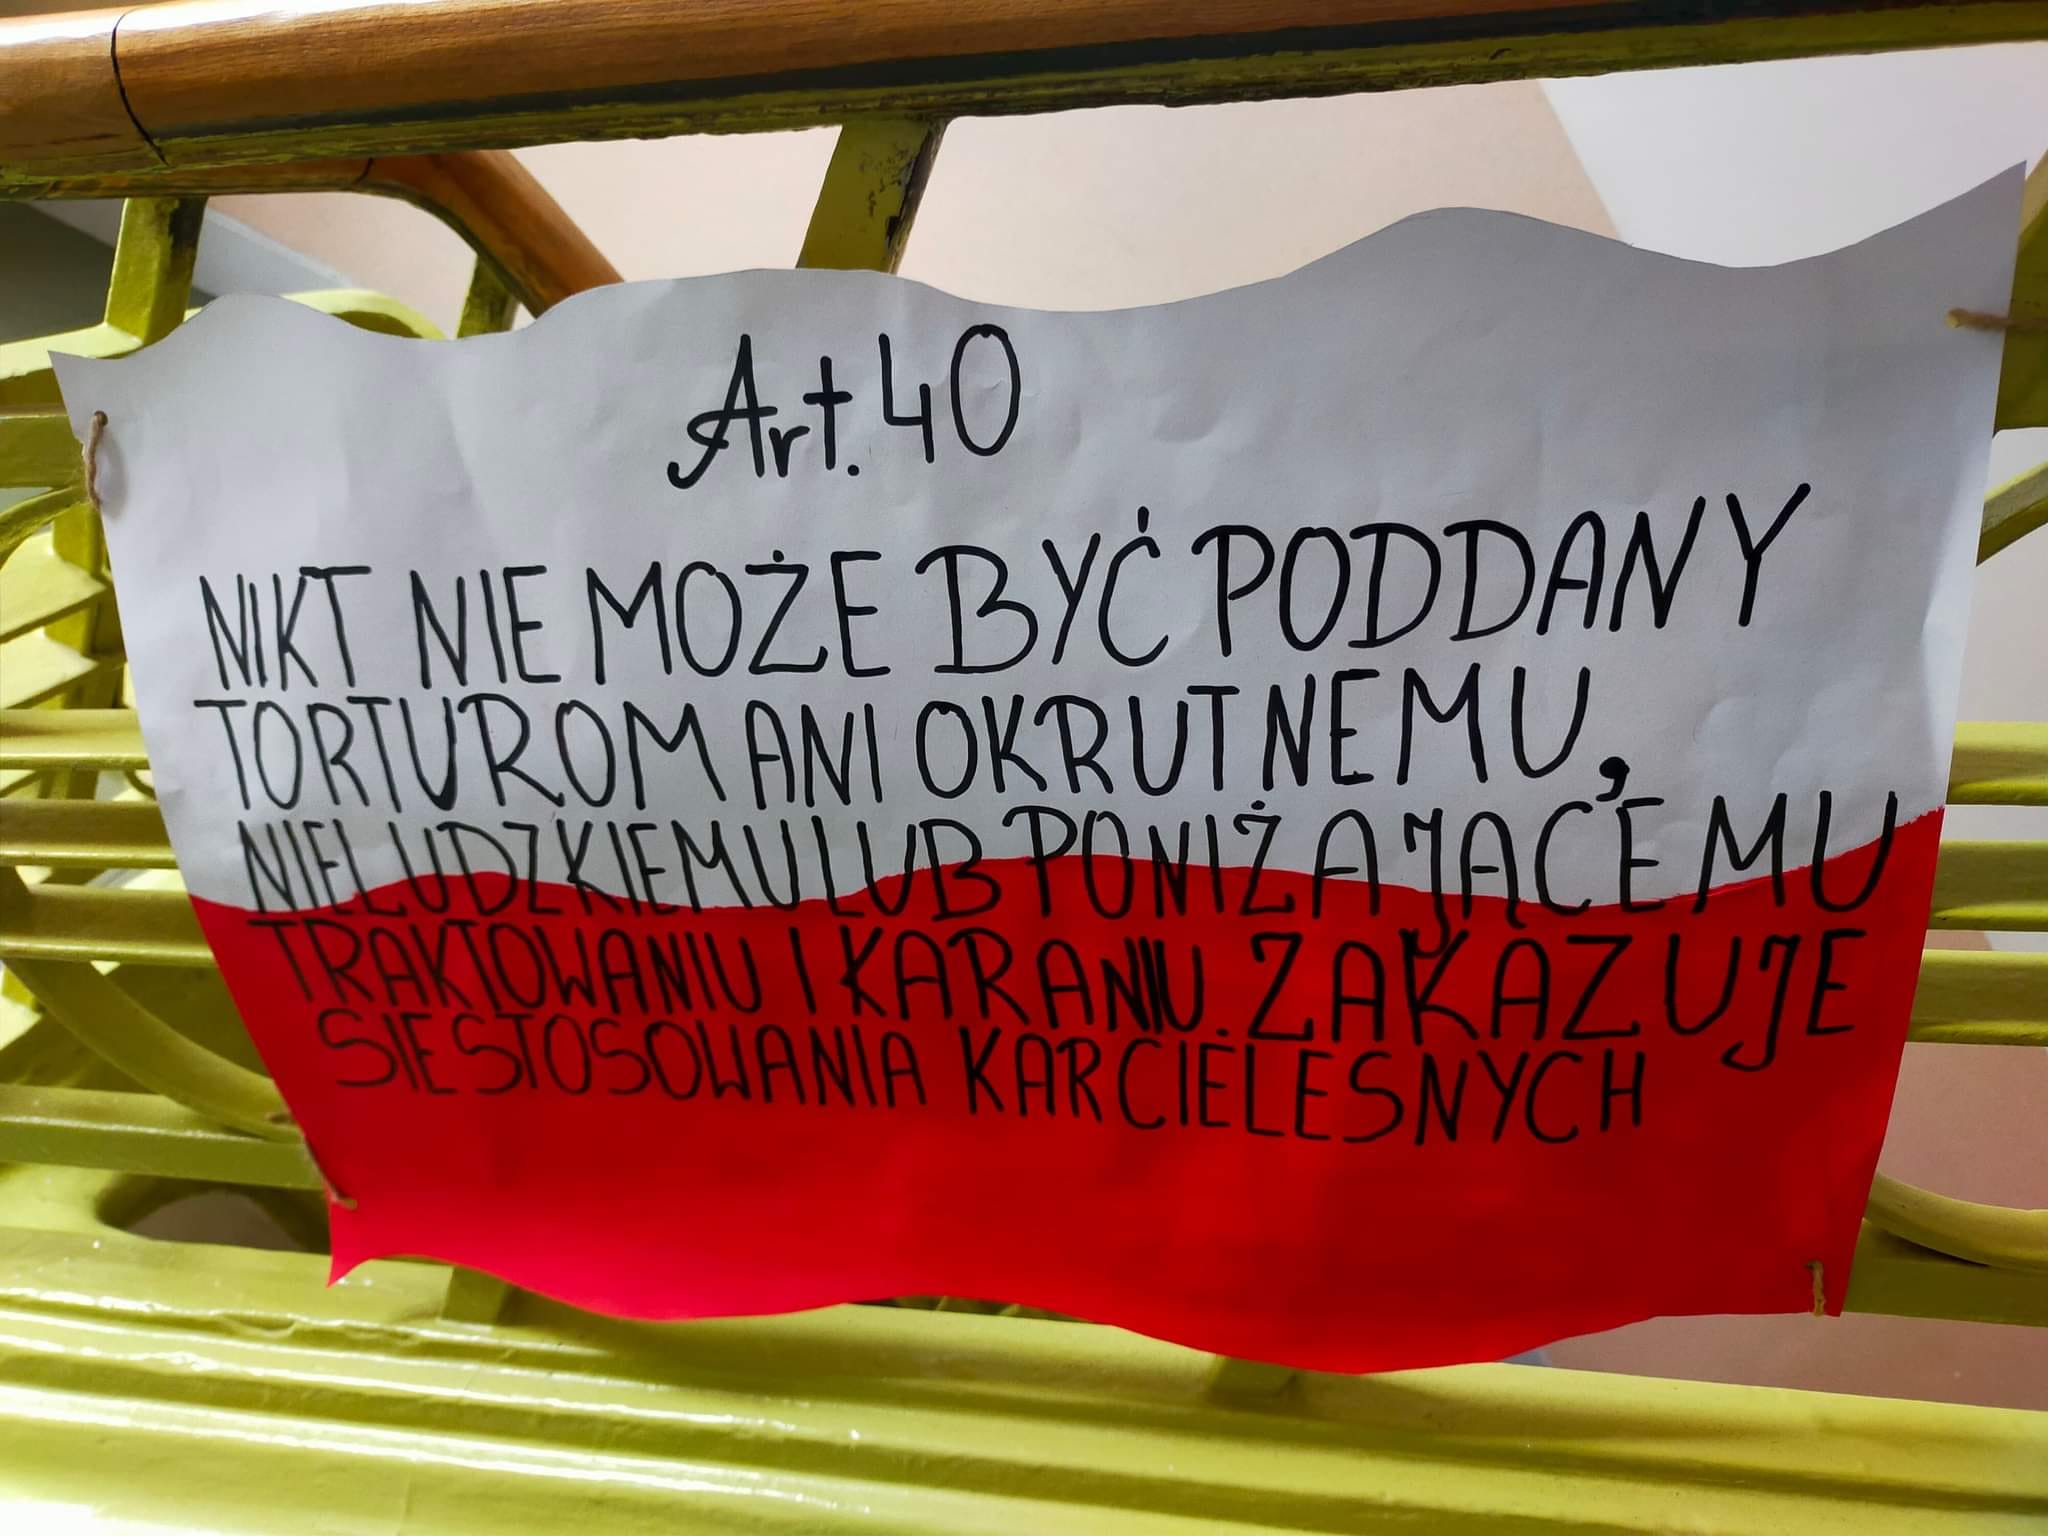 Art. 40
NIKT NIE MOŻE BYĆ PODDANY
TORTUROM ANI OKRUTNEMU,
NIELUDZKIEMU LUB PONIŻAJĄCEMU
TRAKTOWANIU I KARANIU. ZAKAZUJE
SIĘ STOSOWANIA KAR CIELESNYCH